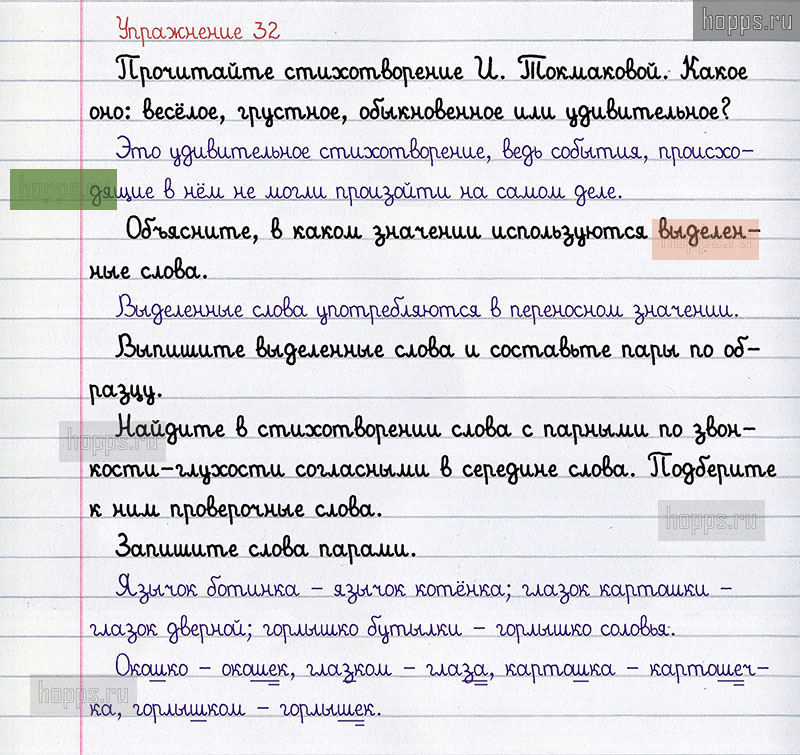 hopps.ru
Упражнение 32
Прочитайте стихотворение И. Токмаковой. Какое
оно: весёлое, грустное, обыкновенное или удивительное?
Это удивительное стихотворение, ведь события, происхо-
дящие в нём не могли произойти на самом деле.
hopps.ru
Объясните, в каком значении используются выделен-
hopps.ru
ные слова.
Выделенные слова употребляются в переносном значении.
Выпишите выделенные слова и составьте пары по об-
разцу.
Найдите в стихотворении слова с парными по звон-
hopps.ru
кости-глухости согласными в середине слова. Подберите
к ним проверочные слова.
hopps.ru
Запишите слова парами.
Язычок ботинка – язычок котёнка; глазок картошки –
глазок дверной; горлышко бутылки – горлышко соловья.
Окошко – окошек, глазком – глаза, картошка – картошеч-
hopps.ru
ка, горлышком – горлышек.